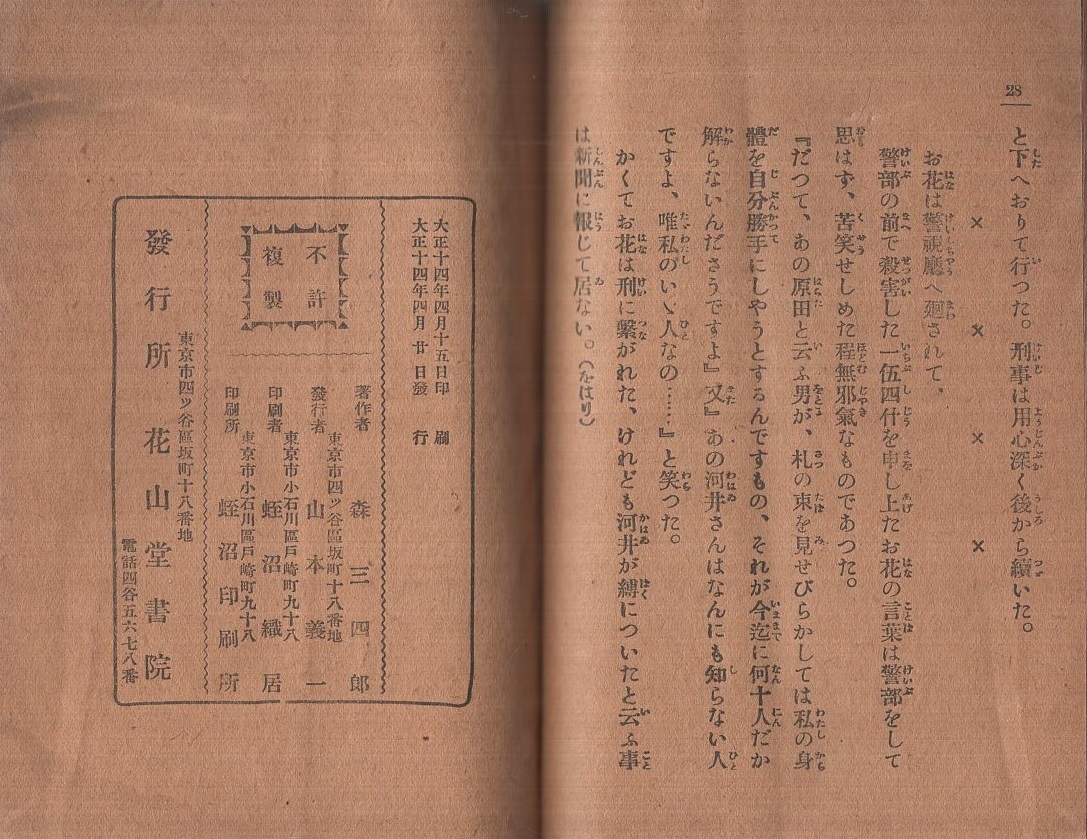 28
と下へおりて行つた。刑事は用心深く後から續いた。
×　×　×　×
お花は警視廳へ廻されて、
警部の前で殺害した一伍四什を申し上たお花の言葉は警部をして
思はず、苦笑せしめた程無邪氣なものであつた。
『だつて、あの原田と云ふ男が、札の束を見せびらかしては私の身
體を自分勝手にしやうとするんですもの、それが今迄に何十人だか
解らないんださうですよ』又『あの河井さんはなんにも知らない人
ですよ、唯私のいゝ人なの……』と笑つた。
かくてお花は刑に繋がれた、けれども河井が縛についたと云ふ事
は新聞に報じて居ない。（をはり）
大正十四年四月十五日印刷
大正十四年四月廿日發行
不許
複製
著作者　森三四郎
東京市四ッ谷區坂町十八番地
發行者　山本義一
東京市小石川區戸崎町九十八
印刷者　蛭沼織居
東京市小石川區戸崎町九十八
印刷所　蛭沼印刷所
東京市四ッ谷區坂町十八番地
發行所　花山堂書院
電話四谷五六七八番